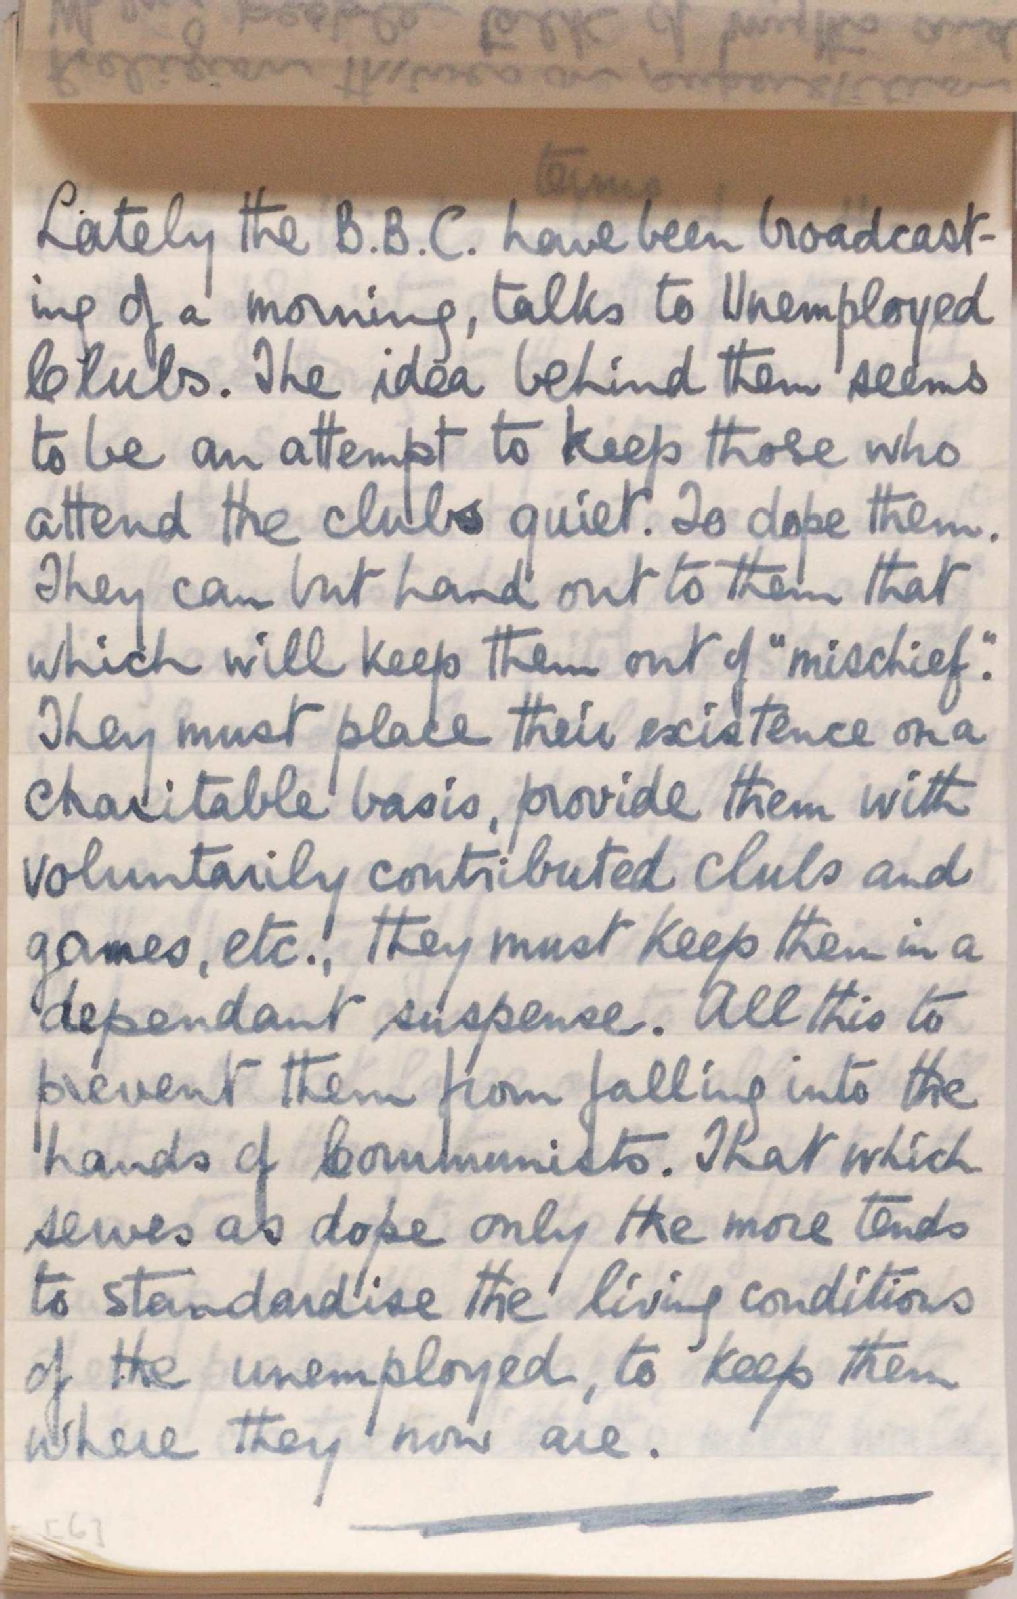 Lately the B.B.C. have been broadcast-
ing of a morning, talks to Unemployed
Clubs. The idea behind them seems
to be an attempt to keep those who
attend the clubs quiet. To dope them.
They can but hand out to them that
which will keep them out of "mischief".
They must place their existence on a
charitable basis, provide them with
voluntarily contributed clubs and
games, etc., they must keep them in a
dependant suspense. All this to
prevent them from falling into the
hands of Communists. That which
serves as dope only the more tends
to standardise the living conditions
of the unemployed, to keep them
where they now are.
[6]